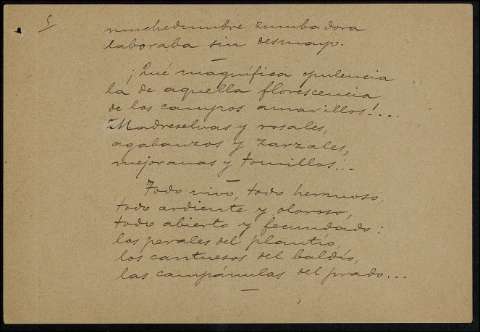 muchedumbre zumbadora
laboraba sin desmayo.
—
¡Qué magnífica opulencia
la de aquella florescencia
de los campos amarillos!...
Madreselvas y rosales,
agabanzos y zarzales,
mejoranas y tomillos...
—
Todo vivo, todo hermoso,
todo ardiente y oloroso,
todo abierto y fecundado:
los perales del plantío,
los cantuesos del baldío,
las campánulas del prado...
—